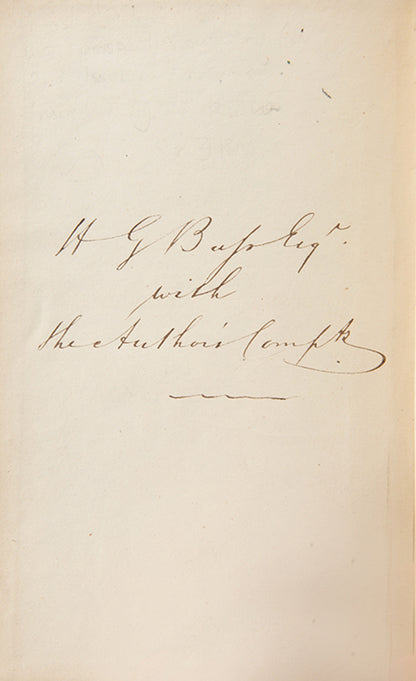 H G Buss Esqr.
with
the Author's Complts